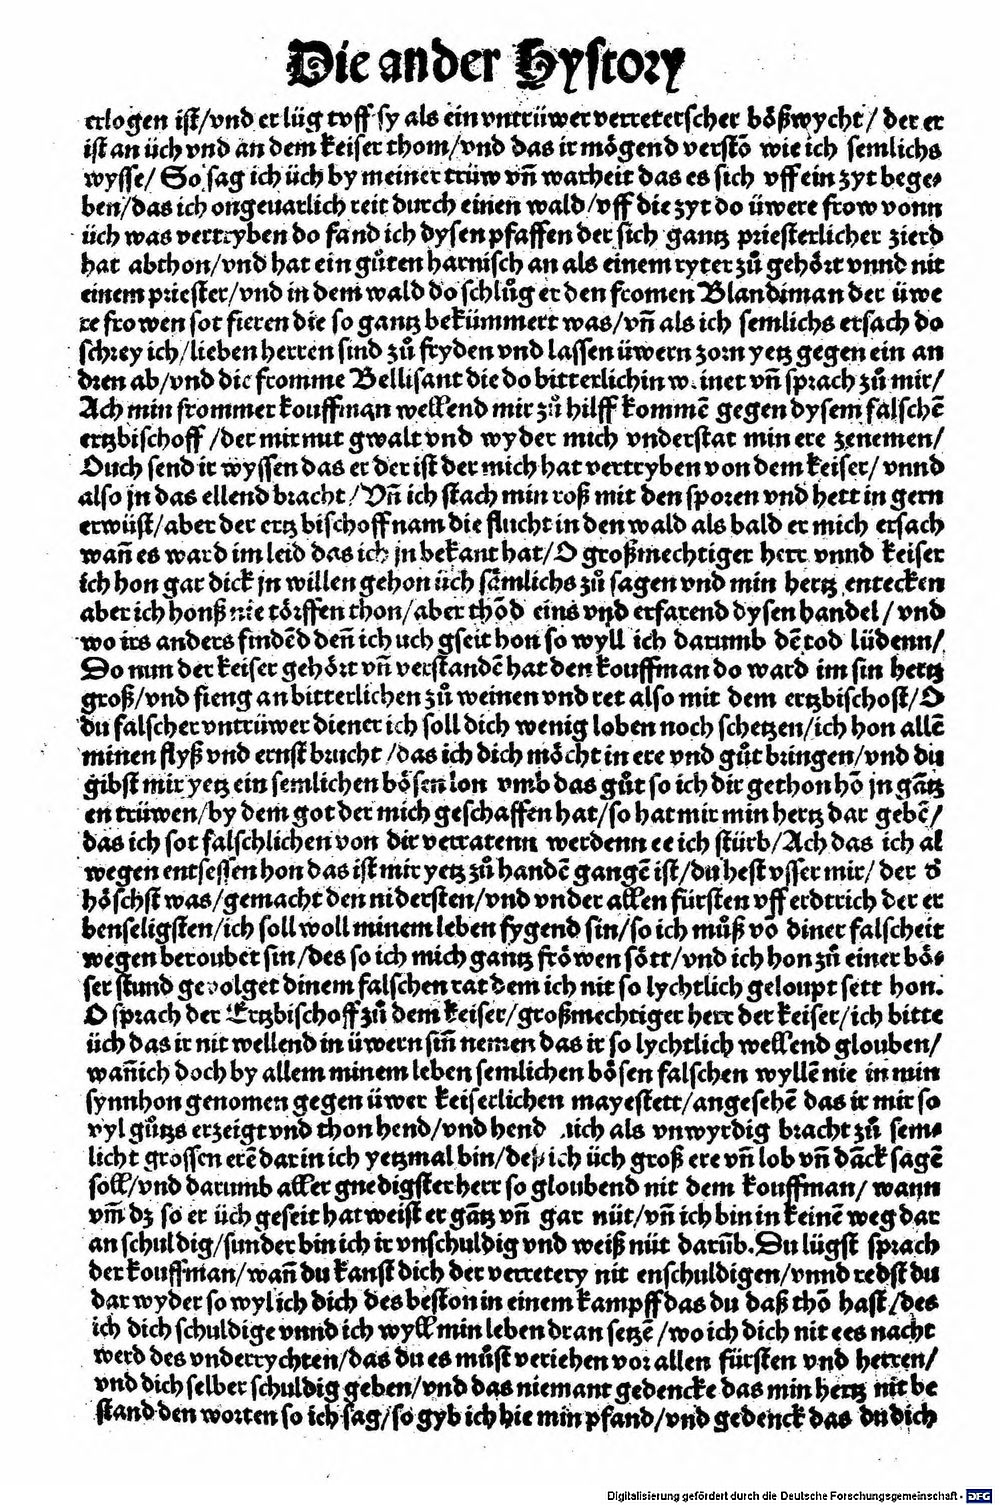 Die ander Hystory
erlogen ist/vnd er lüg vff sy als ein vntrüwer verreterscher bößwycht/ der er
ist an üch vnd an dem keiser thom/vnd das ir mögend verstō wie ich semlichs
wysse/ So sag ich üch by meiner trüw vn̄ warheit das es sich vff ein zyt bege⸗
ben/das ich ongeuarlich reit durch einen wald/vff die zyt do üwere frow vonn
üch was vertryben do fand ich dysen pfaffen der sich gantz priesterlicher zierd
hat abthon/vnd hat ein gůten harnisch an als einem ryter zů gehört vnnd nit
einem priester/vnd in dem wald do schlůg er den fromen Blandiman der üwe
re frowen sot fieren die so gantz bekümmert was/vn̄ als ich semlichs ersach do
schrey ich/lieben herren sind zů fryden vnd lassen üwern zorn yetz gegen ein an
dren ab/vnd die fromme Bellisant die do bitterlichin weinet vn̄ sprach zů mir/
Ach min frommer kouffman wellend mir zů hilff kommē gegen dysem falschē
ertzbischoff/der mir mit gwalt vnd wyder mich vnderstat min ere zenemen/
Ouch send ir wyssen das er der ist der mich hat vertryben von dem keiser/ vnnd
also jn das ellend bracht/Vn̄ ich stach min roß mit den sporen vnd hett in gern
erwüst/aber der ertz bischoff nam die flucht in den wald als bald er mich ersach
wan̄ es ward im leid das ich jn bekant hat/O großmechtiger herr vnnd keiser
ich hon gar dick jn willen gehon üch sämlichs zů sagen vnd min hertz entecken
aber ich honß nie törffen thon/aber thōd eins vnd erfarend dysen handel/vnd
wo irs anders findēd den̄ ich uch gseit hon so wyll ich darumb dē tod lüdenn/
Do nun der keiser gehört vn̄ verstandē hat den kouffman do ward im sin hertz
groß/vnd fieng an bitterlichen zů weinen vnd ret also mit dem ertzbischoff/O
du falscher vntrüwer diener ich soll dich wenig loben noch schetzen/ich hon allē
minen flyß vnd ernst brucht/das ich dich möcht in ere vnd gůt bringen/vnd du
gibst mir yetz ein semlichen bösen lon vmb das gůt so ich dir gethon hō jn gātz
en trüwen/by dem got der mich geschaffen hat/so hat mir min hertz dar gebē/
das ich sot falschlichen von dir verratenn werdenn ee ich stürb/Ach das ich al
wegen entsessen hon das ist mir yetz zů handē gangē ist/du hest vsser mir/ der d̕
höschst was/gemacht den nidersten/vnd vnder allen fürsten vff erdtrich der er
benseligsten/ich soll woll minem leben fygend sin/so ich můß vō diner falscheit
wegen beroubet sin/des so ich mich gantz fröwen sött/vnd ich hon zů einer bö⸗
ser stund gevolget dinem falschen rat dem ich nit so lychtlich geloupt sett hon.
O sprach der Ertzbischoff zů dem keiser/großmechtiger herr der keiser/ich bitte
üch das ir nit wellend in üwern sin̄ nemen das ir so lychtlich wellend glouben/
wan̄ ich doch by allem minem leben semlichen bösen falschen wyllē nie in min
synn hon genomen gegen üwer keiserlichen mayestett/angesehē das ir mir so
vyl gůtzs erzeigt vnd thon hend/vnd hend mich als vnwyrdig bracht zů sem⸗
licht grossen erē dar in ich yetzmal bin/deß ich üch groß ere vn̄ lob vn̄ dāck sagē
soll/vnd darumb aller gnedigster herr so gloubend nit dem kouffman/ wann
vm̄ dz so er üch geseit hat weist er gātz vn̄ gar nüt/vn̄ ich bin in keinē weg dar
an schuldig/sunder bin ich ir vnschuldig vnd weiß nüt darūb. Du lügst sprach
der kouffman/wan̄ du kanst dich der verretery nit enschuldigen/vnnd redst du
dar wyder so wyl ich dich des beston in einem kampff das du daß thō hast/des
ich dich schuldige vnnd ich wyll min leben dran setzē/wo ich dich nit ees nacht
werd des vnderrychten/das du es můst veriehen vor allen fürsten vnd herren/
vnd dich selber schuldig geben/vnd das niemant gedencke das min hertz nit be
stand den worten so ich sag/so gyb ich hie min pfand/vnd gedenck das du dich
Digitalisierung gefördert durch die Deutsche Forschungsgemeinschaft - DFG